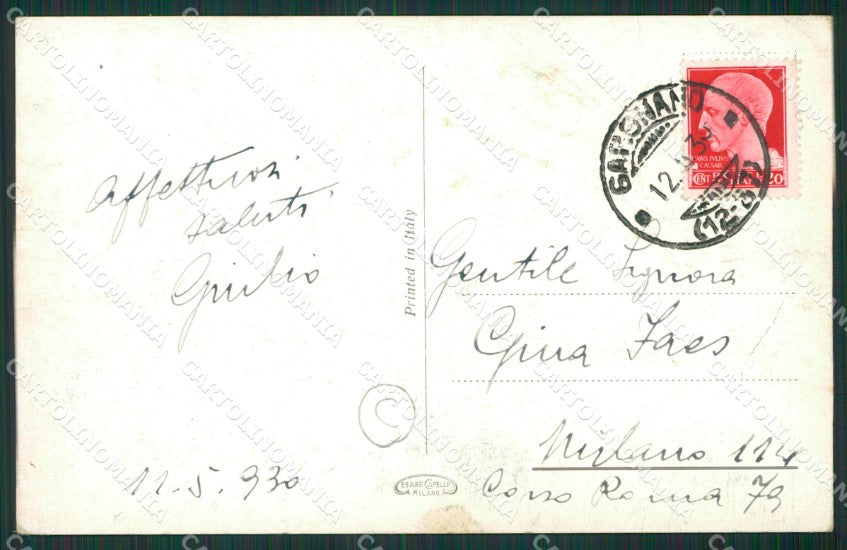 Affettuosi
saluti
Giulio
11.5.930
Printed in Italy
CESARE CAPELLO
MILANO
GARGNANO
12.5.30
(12-82)
CAIVS IVLIVS
CAESAR
CENT. 20
Gentile Signora
Gina Faes
Milano 114
Corso Roma 79
C
CARTOLINOMANIA